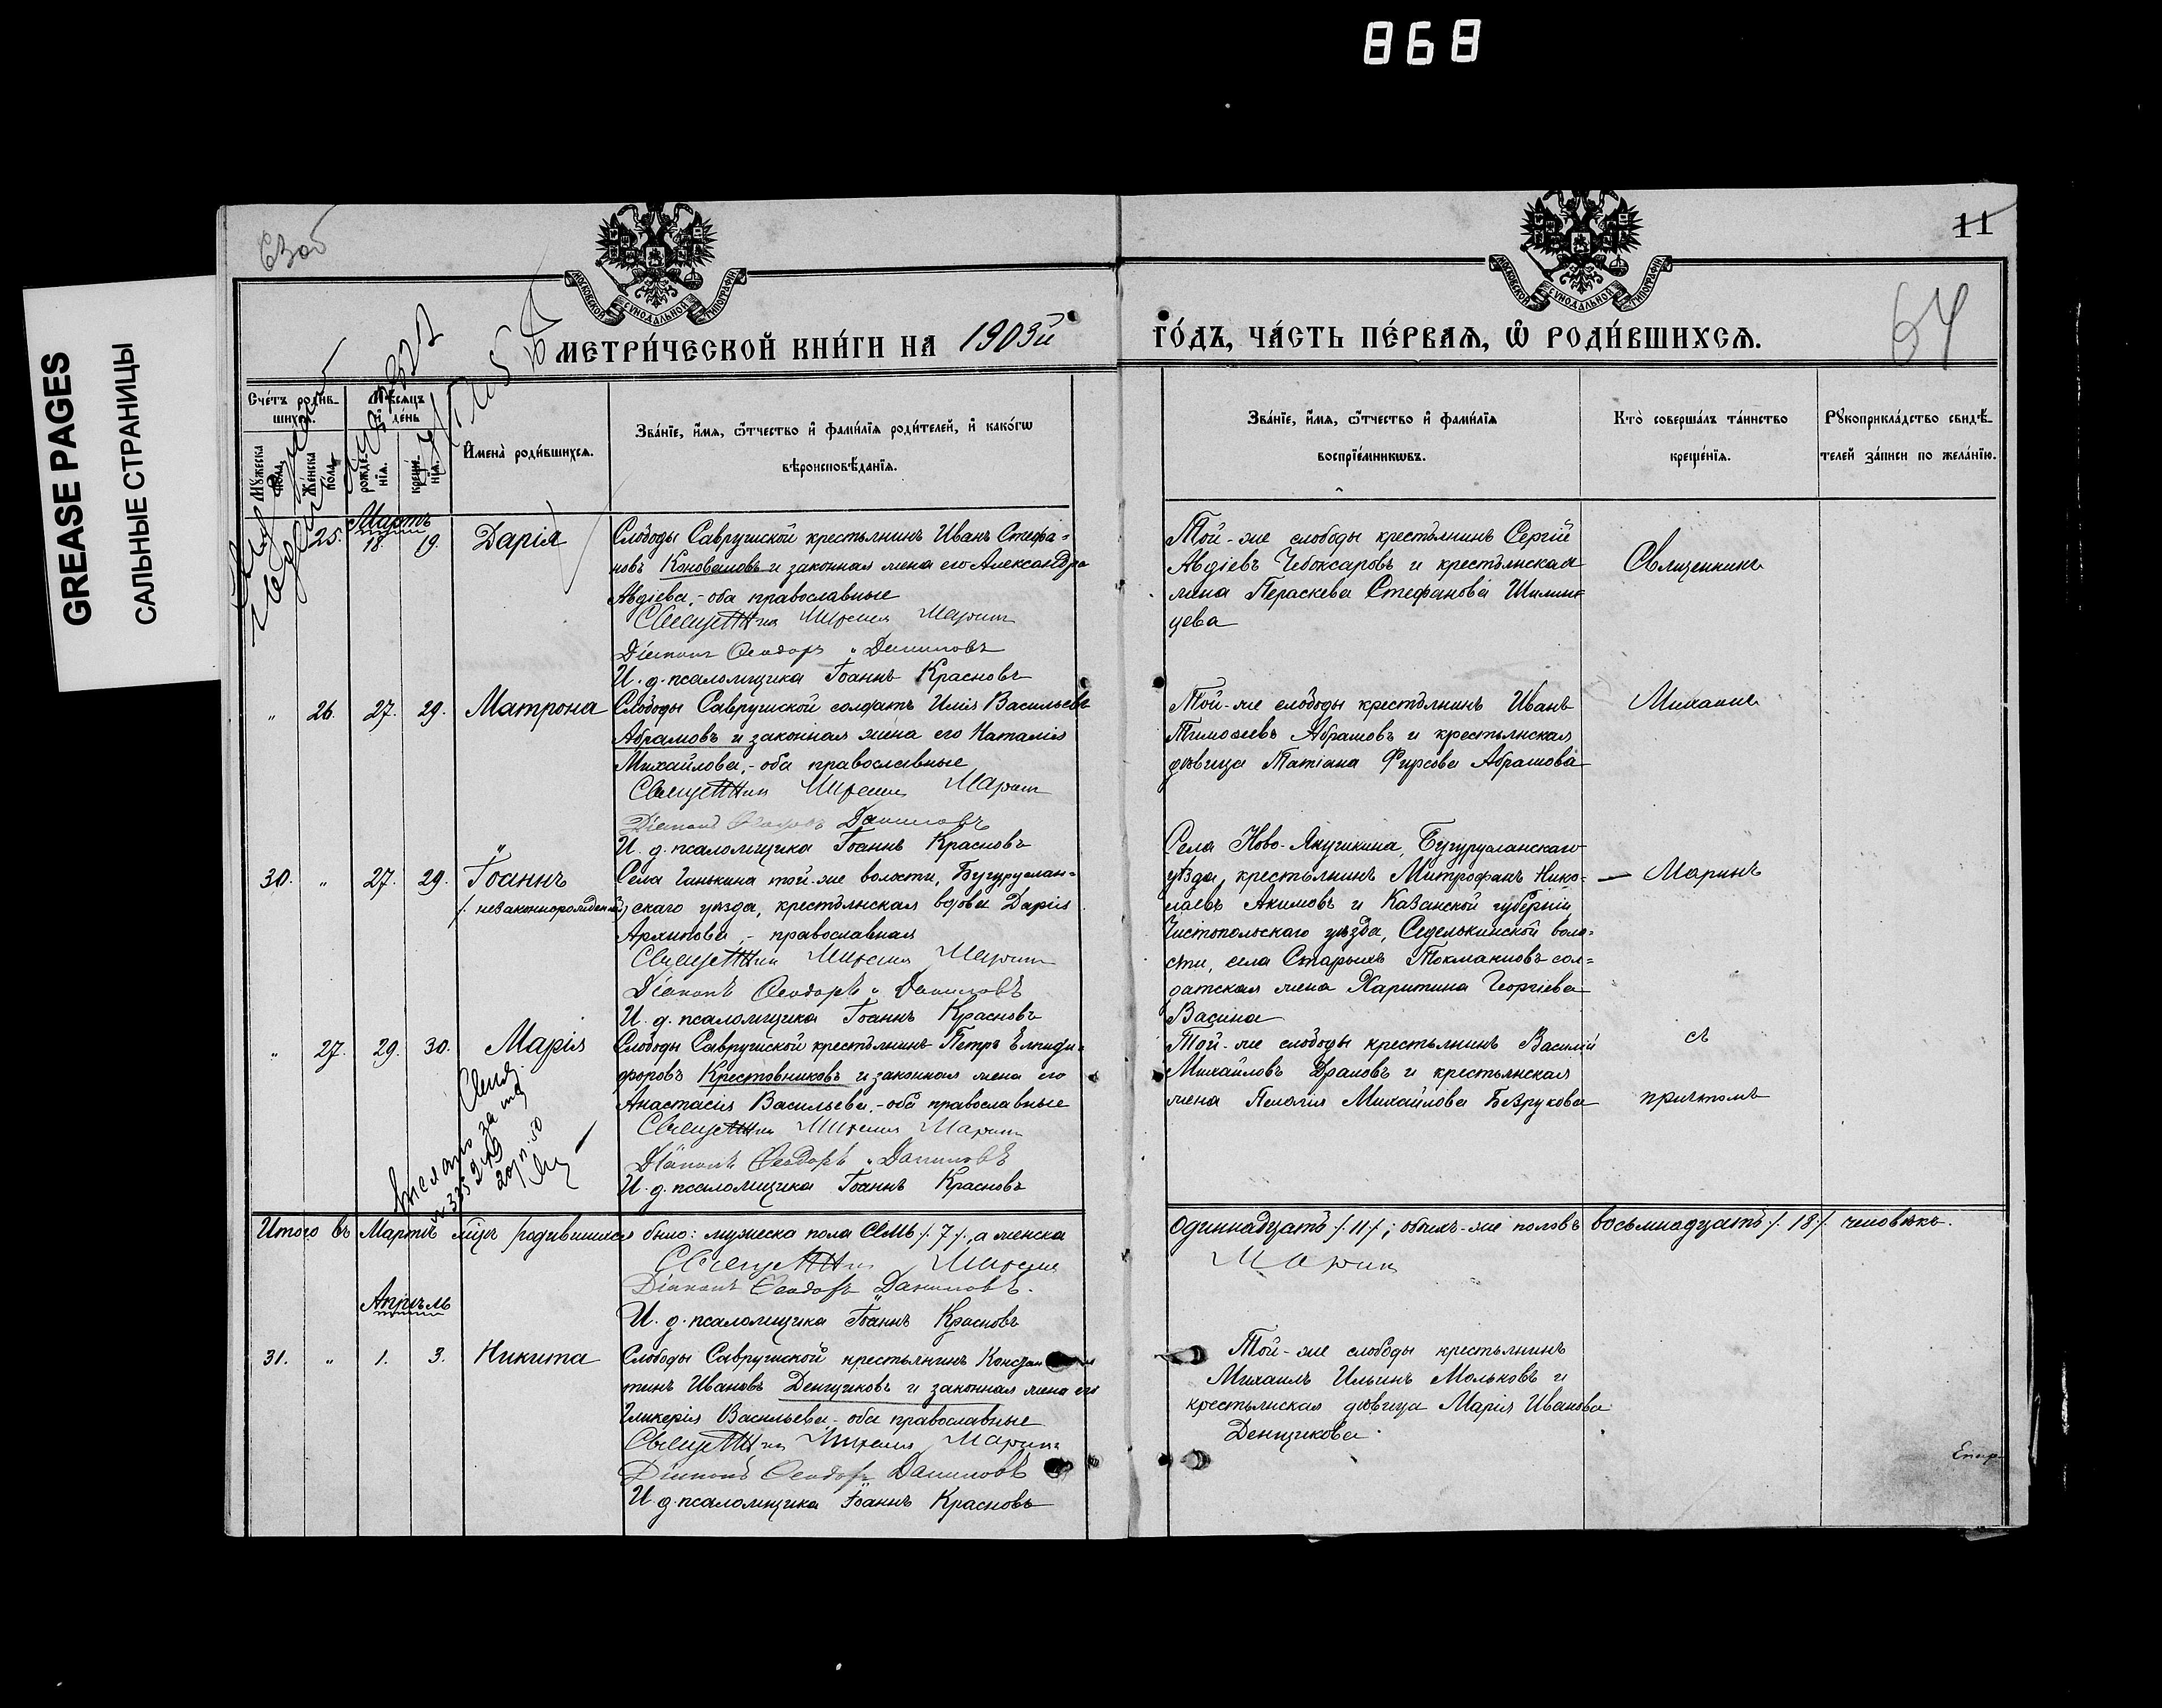 868
GREASE PAGES
САЛЬНЫЕ СТРАНИЦЫ
63об
11
64
МОСКОВСКОЙ СѴНОДАЛЬНОЙ ТИПОГРАФІИ
МОСКОВСКОЙ СѴНОДАЛЬНОЙ ТИПОГРАФІИ
МЕТРИ́ЧЕСКОЙ КНИ́ГИ НА 1903й
ГО́ДЪ, ЧА́СТЬ ПЕ́РВАЯ, Ѽ РОДИ́ВШИХСЯ.
Сче́тъ роди́в-
шихся.
Мѣ́сяцъ
и҆ де́нь
Мꙋ́жеска
по́ла.
Же́нска
по́ла.
рожде́-
нїѧ.
креще́-
нїѧ.
И҆мена̀ роди́вшихсѧ.
Зва́нїе, и҆́мѧ, ѻ҆́тчество и҆ фами́лїѧ роди́телей, и҆ како́гѡ
вѣроисповѣ́данїѧ.
Зва́нїе, и҆́мѧ, ѻ҆́тчество и҆ фами́лїѧ
воспрїе́мникѡвъ.
Кто̀ соверша́лъ та́инство
креще́нїѧ.
Рꙋкоприкла́дство свидѣ́-
телей за́писи по жела́нїю.
Мартъ
25. 18. 19. Дарія
Слободы Саврушской крестьянинъ Иванъ Стефа-
новъ Коноваловъ и законная жена его Александра
Авдіева, - оба православные
Священникъ Михаилъ Маринъ
Діаконъ Ѳеодоръ Даниловъ
И. д. псаломщика Іоаннъ Красновъ
Той-же слободы крестьянинъ Сергій
Авдіевъ Чебоксаровъ и крестьянская
жена Параскева Стефанова
цева
Священникъ
" 26. 27. 29. Матрона
Слободы Саврушской солдатъ Илія Васильевъ
Абрамовъ и законная жена его Наталія
Михайлова, - оба православные
Священникъ Михаилъ Маринъ
Діаконъ Ѳеодоръ Даниловъ
И. д. псаломщика Іоаннъ Красновъ
Той-же слободы крестьянинъ Иванъ
Тимоѳеевъ Абрамовъ и крестьянская
дѣвица Татіана Фирсова Абрамова
Михаилъ
30. " 27. 29. Іоаннъ
/. незаконнорожденный
Села Ганькина той-же волости, Бугуруслан-
скаго уѣзда, крестьянская вдова Дарія
Архипова, - православная
Священникъ Михаилъ Маринъ
Діаконъ Ѳеодоръ Даниловъ
И. д. псаломщика Іоаннъ Красновъ
Села Ново-Якушкина, Бугурусланскаго
уѣзда, крестьянинъ Митрофанъ Нико-
лаевъ Акимовъ и Казанской губерніи,
Чистопольскаго уѣзда, Седелькинской воло-
сти, села Старыхъ Токмаковъ сол-
датская жена Харитина Георгіева
Васина
Маринъ
" 27. 29. 30. Марія
Слободы Саврушской крестьянинъ Петръ Елпиди-
форовъ Крестовниковъ и законная жена его
Анастасія Васильева, - оба православные
Священникъ Михаилъ Маринъ
Діаконъ Ѳеодоръ Даниловъ
И. д. псаломщика Іоаннъ Красновъ
Той-же слободы крестьянинъ Василій
Михайловъ и крестьянская
жена Пелагія Михайлова Безрукова
съ
причтомъ
Итого въ Мартѣ мѣцѣ родившихся было: мужеска пола семь /. 7 /., а женска
одиннадцать /. 11 /.; обоихъ-же половъ восьмнадцать /. 18 /. человѣкъ.
Священникъ Михаилъ
Маринъ
Діаконъ Ѳеодоръ Даниловъ.
И. д. псаломщика Іоаннъ Красновъ
Апрѣль
31. " 1. 3. Никита
Слободы Саврушской крестьянинъ Констан
тинъ Ивановъ Денщиковъ и законная жена его
Гликерія Васильева - оба православные
Священникъ Михаилъ Маринъ
Діаконъ Ѳеодоръ Даниловъ
И. д. псаломщика Іоаннъ Красновъ
Той-же слободы крестьянинъ
Михаилъ Ильинъ Мольковъ и
крестьянская дѣвица Марія Иванова
Денщикова.